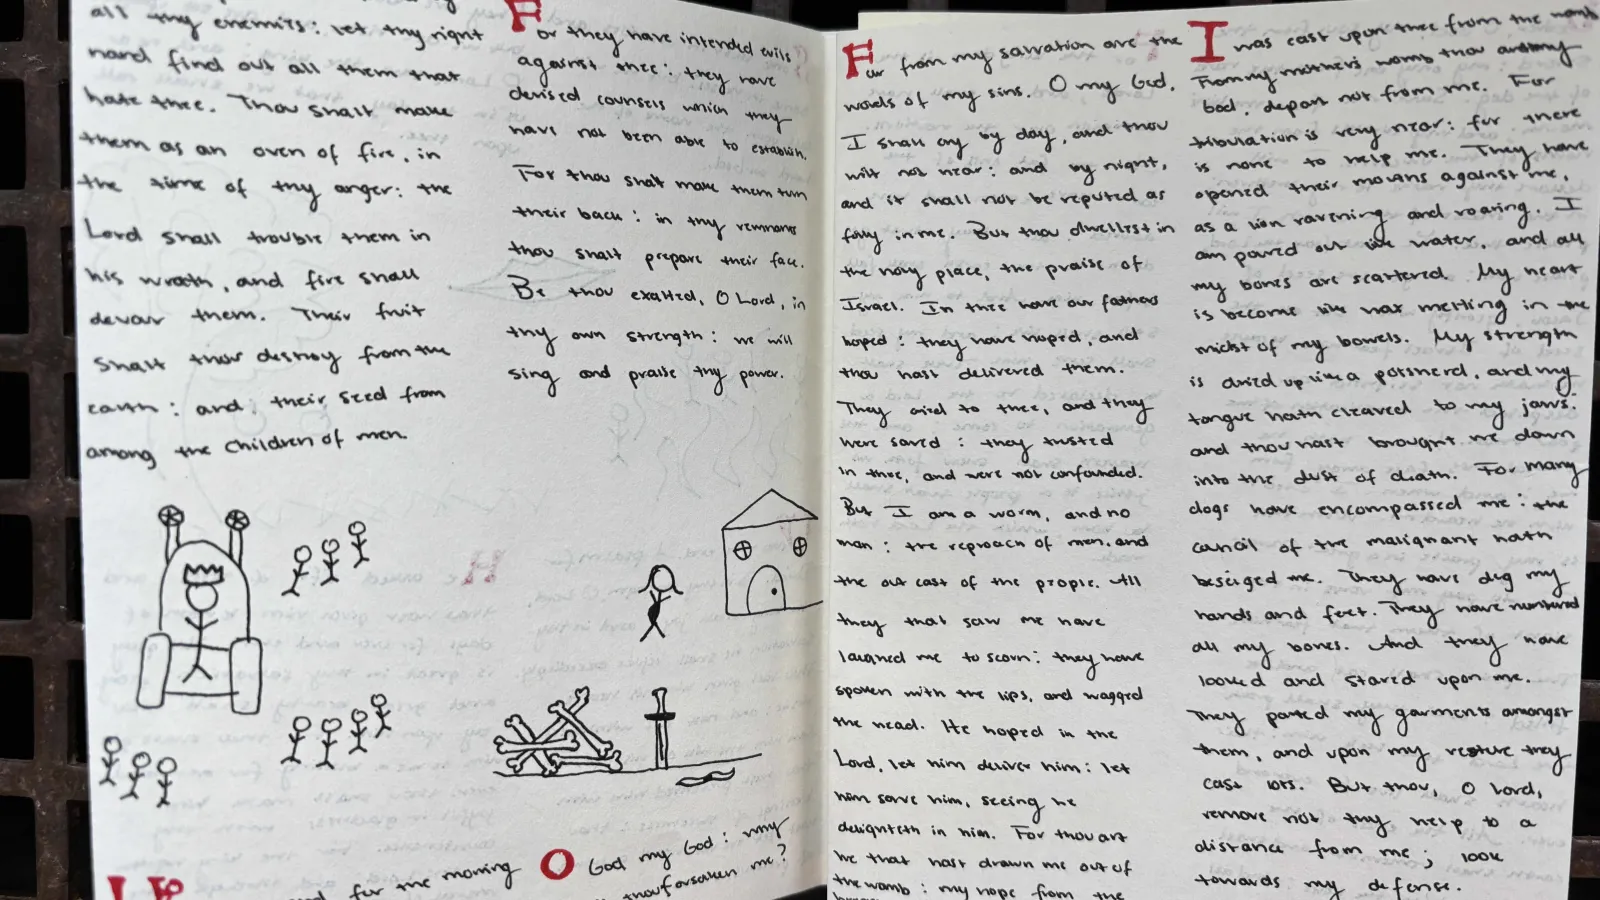 all thy enemies: let thy right
hand find out all them that
hate thee. Thou shalt make
them as an oven of fire, in
the time of thy anger: the
Lord shall trouble them in
his wrath, and fire shall
devour them. Their fruit
shalt thou destroy from the
earth: and their seed from
among the children of men.
For they have intended evils
against thee: they have
devised counsels which they
have not been able to establish.
For thou shalt make them turn
their back: in thy remnants
thou shalt prepare their face.
Be thou exalted, O Lord, in
thy own strength: we will
sing and praise thy power.
for the morning
O God my God: why
thou forsaken me?
Far from my salvation are the
words of my sins. O my God,
I shall cry by day, and thou
wilt not hear: and by night,
and it shall not be reputed as
folly in me. But thou dwellest in
the holy place, the praise of
Israel. In thee have our fathers
hoped: they have hoped, and
thou hast delivered them.
They cried to thee, and they
were saved: they trusted
in thee, and were not confounded.
But I am a worm, and no
man: the reproach of men, and
the out cast of the people. All
they that saw me have
laughed me to scorn: they have
spoken with the lips, and wagged
the head. He hoped in the
Lord, let him deliver him: let
him save him, seeing he
delighteth in him. For thou art
he that hast drawn me out of
the womb: my hope from the
I was cast upon thee from the womb
From my mother's womb thou art my
God, depart not from me. For
tribulation is very near: for there
is none to help me. They have
opened their mouths against me,
as a lion ravening and roaring. I
am poured out like water, and all
my bones are scattered. My heart
is become like wax melting in the
midst of my bowels. My strength
is dried up like a potsherd, and my
tongue hath cleaved to my jaws:
and thou hast brought me down
into the dust of death. For many
dogs have encompassed me: the
council of the malignant hath
beseiged me. They have dug my
hands and feet. They have numbered
all my bones. And they have
looked and stared upon me.
They parted my garments amongst
them, and upon my vesture they
cast lots. But thou, O Lord,
remove not thy help to a
distance from me; look
towards my defense.